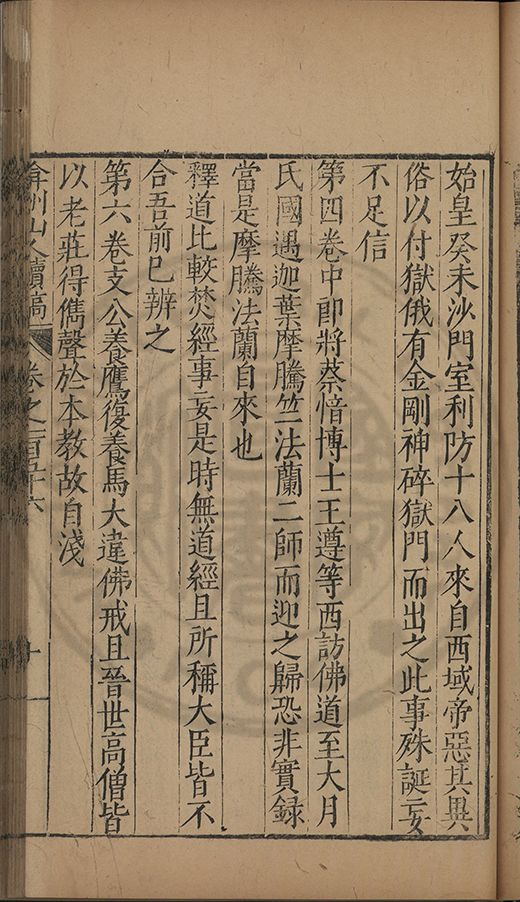 始皇癸未沙門室利防十八人來自西域帝惡其異
俗以付獄俄有金剛神碎獄門而出之此事殊誕妄
不足信
第四卷中郎將蔡愔博士王遵等西訪佛道至大月
氏國遇迦葉摩騰竺法蘭二師而迎之歸恐非實録
當是摩騰法蘭自來也
釋道比較焚經事妄是時無道經且所稱大臣皆不
合吾前已辨之
第六卷支公養鷹復養馬大違佛戒且晉世高僧皆
以老莊得儁聲於本教故自淺
弇州山人續稿 卷之一百五十六 十